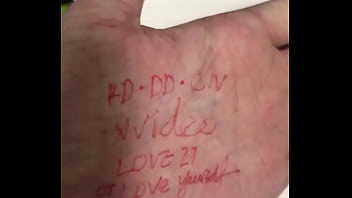 KD.DD.CN
xvideo
LOVE 27
LOVE yourself